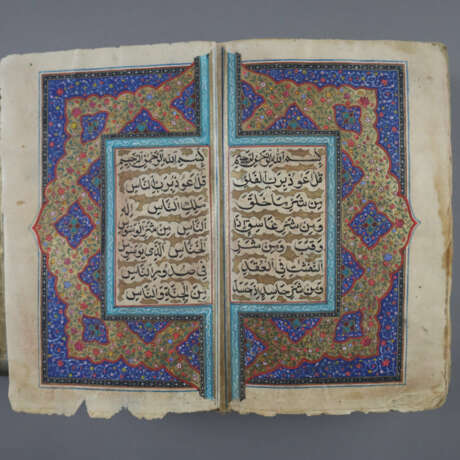 بسم الله الرحمن الرحيم
قل اعوذ برب الفلق
من شر ما خلق
ومن شر غاسق اذا
وقب ومن شر
النفثت في العقد
ومن شر حاسد اذا حسد
بسم الله الرحمن الرحيم
قل اعوذ برب الناس
ملك الناس اله
الناس من شر الوسواس
الخناس الذى يوسوس
في صدور الناس
من الجنة والناس